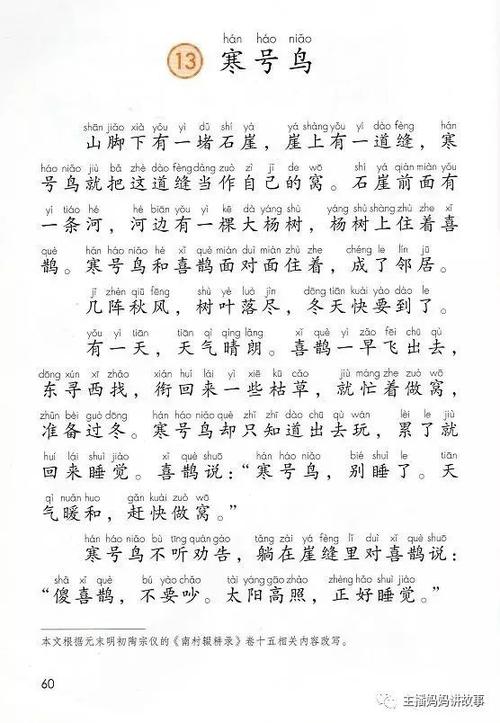 hán háo niǎo
13 寒号鸟
shān jiǎo xià yǒu yì dǔ shí yá yá shàng yǒu yí dào fèng hán
山脚下有一堵石崖，崖上有一道缝，寒
háo niǎo jiù bǎ zhè dào fèng dàng zuò zì jǐ de wō shí yá qián miàn yǒu
号鸟就把这道缝当作自己的窝。石崖前面有
yì tiáo hé hé biān yǒu yì kē dà yáng shù yáng shù shàng zhù zhe xǐ
一条河，河边有一棵大杨树，杨树上住着喜
què hán háo niǎo hé xǐ què miàn duì miàn zhù zhe chéng le lín jū
鹊。寒号鸟和喜鹊面对面住着，成了邻居。
jǐ zhèn qiū fēng shù yè luò jìn dōng tiān kuài yào dào le
几阵秋风，树叶落尽，冬天快要到了。
yǒu yì tiān tiān qì qíng lǎng xǐ què yì zǎo fēi chū qù
有一天，天气晴朗。喜鹊一早飞出去，
dōng xún xī zhǎo xián huí lái yì xiē kū cǎo jiù máng zhe zuò wō
东寻西找，衔回来一些枯草，就忙着做窝，
zhǔn bèi guò dōng hán háo niǎo què zhǐ zhī dào chū qù wán lèi le jiù
准备过冬。寒号鸟却只知道出去玩，累了就
huí lái shuì jiào xǐ què shuō hán háo niǎo bié shuì le tiān
回来睡觉。喜鹊说：“寒号鸟，别睡了。天
qì nuǎn huo gǎn kuài zuò wō
气暖和，赶快做窝。”
hán háo niǎo bù tīng quàn gào tǎng zài yá fèng lǐ duì xǐ què shuō
寒号鸟不听劝告，躺在崖缝里对喜鹊说：
shǎ xǐ què bú yào chǎo tài yáng gāo zhào zhèng hǎo shuì jiào
“傻喜鹊，不要吵。太阳高照，正好睡觉。”
本文根据元末明初陶宗仪的《南村辍耕录》卷十五相关内容改写。
60
主播妈妈讲故事